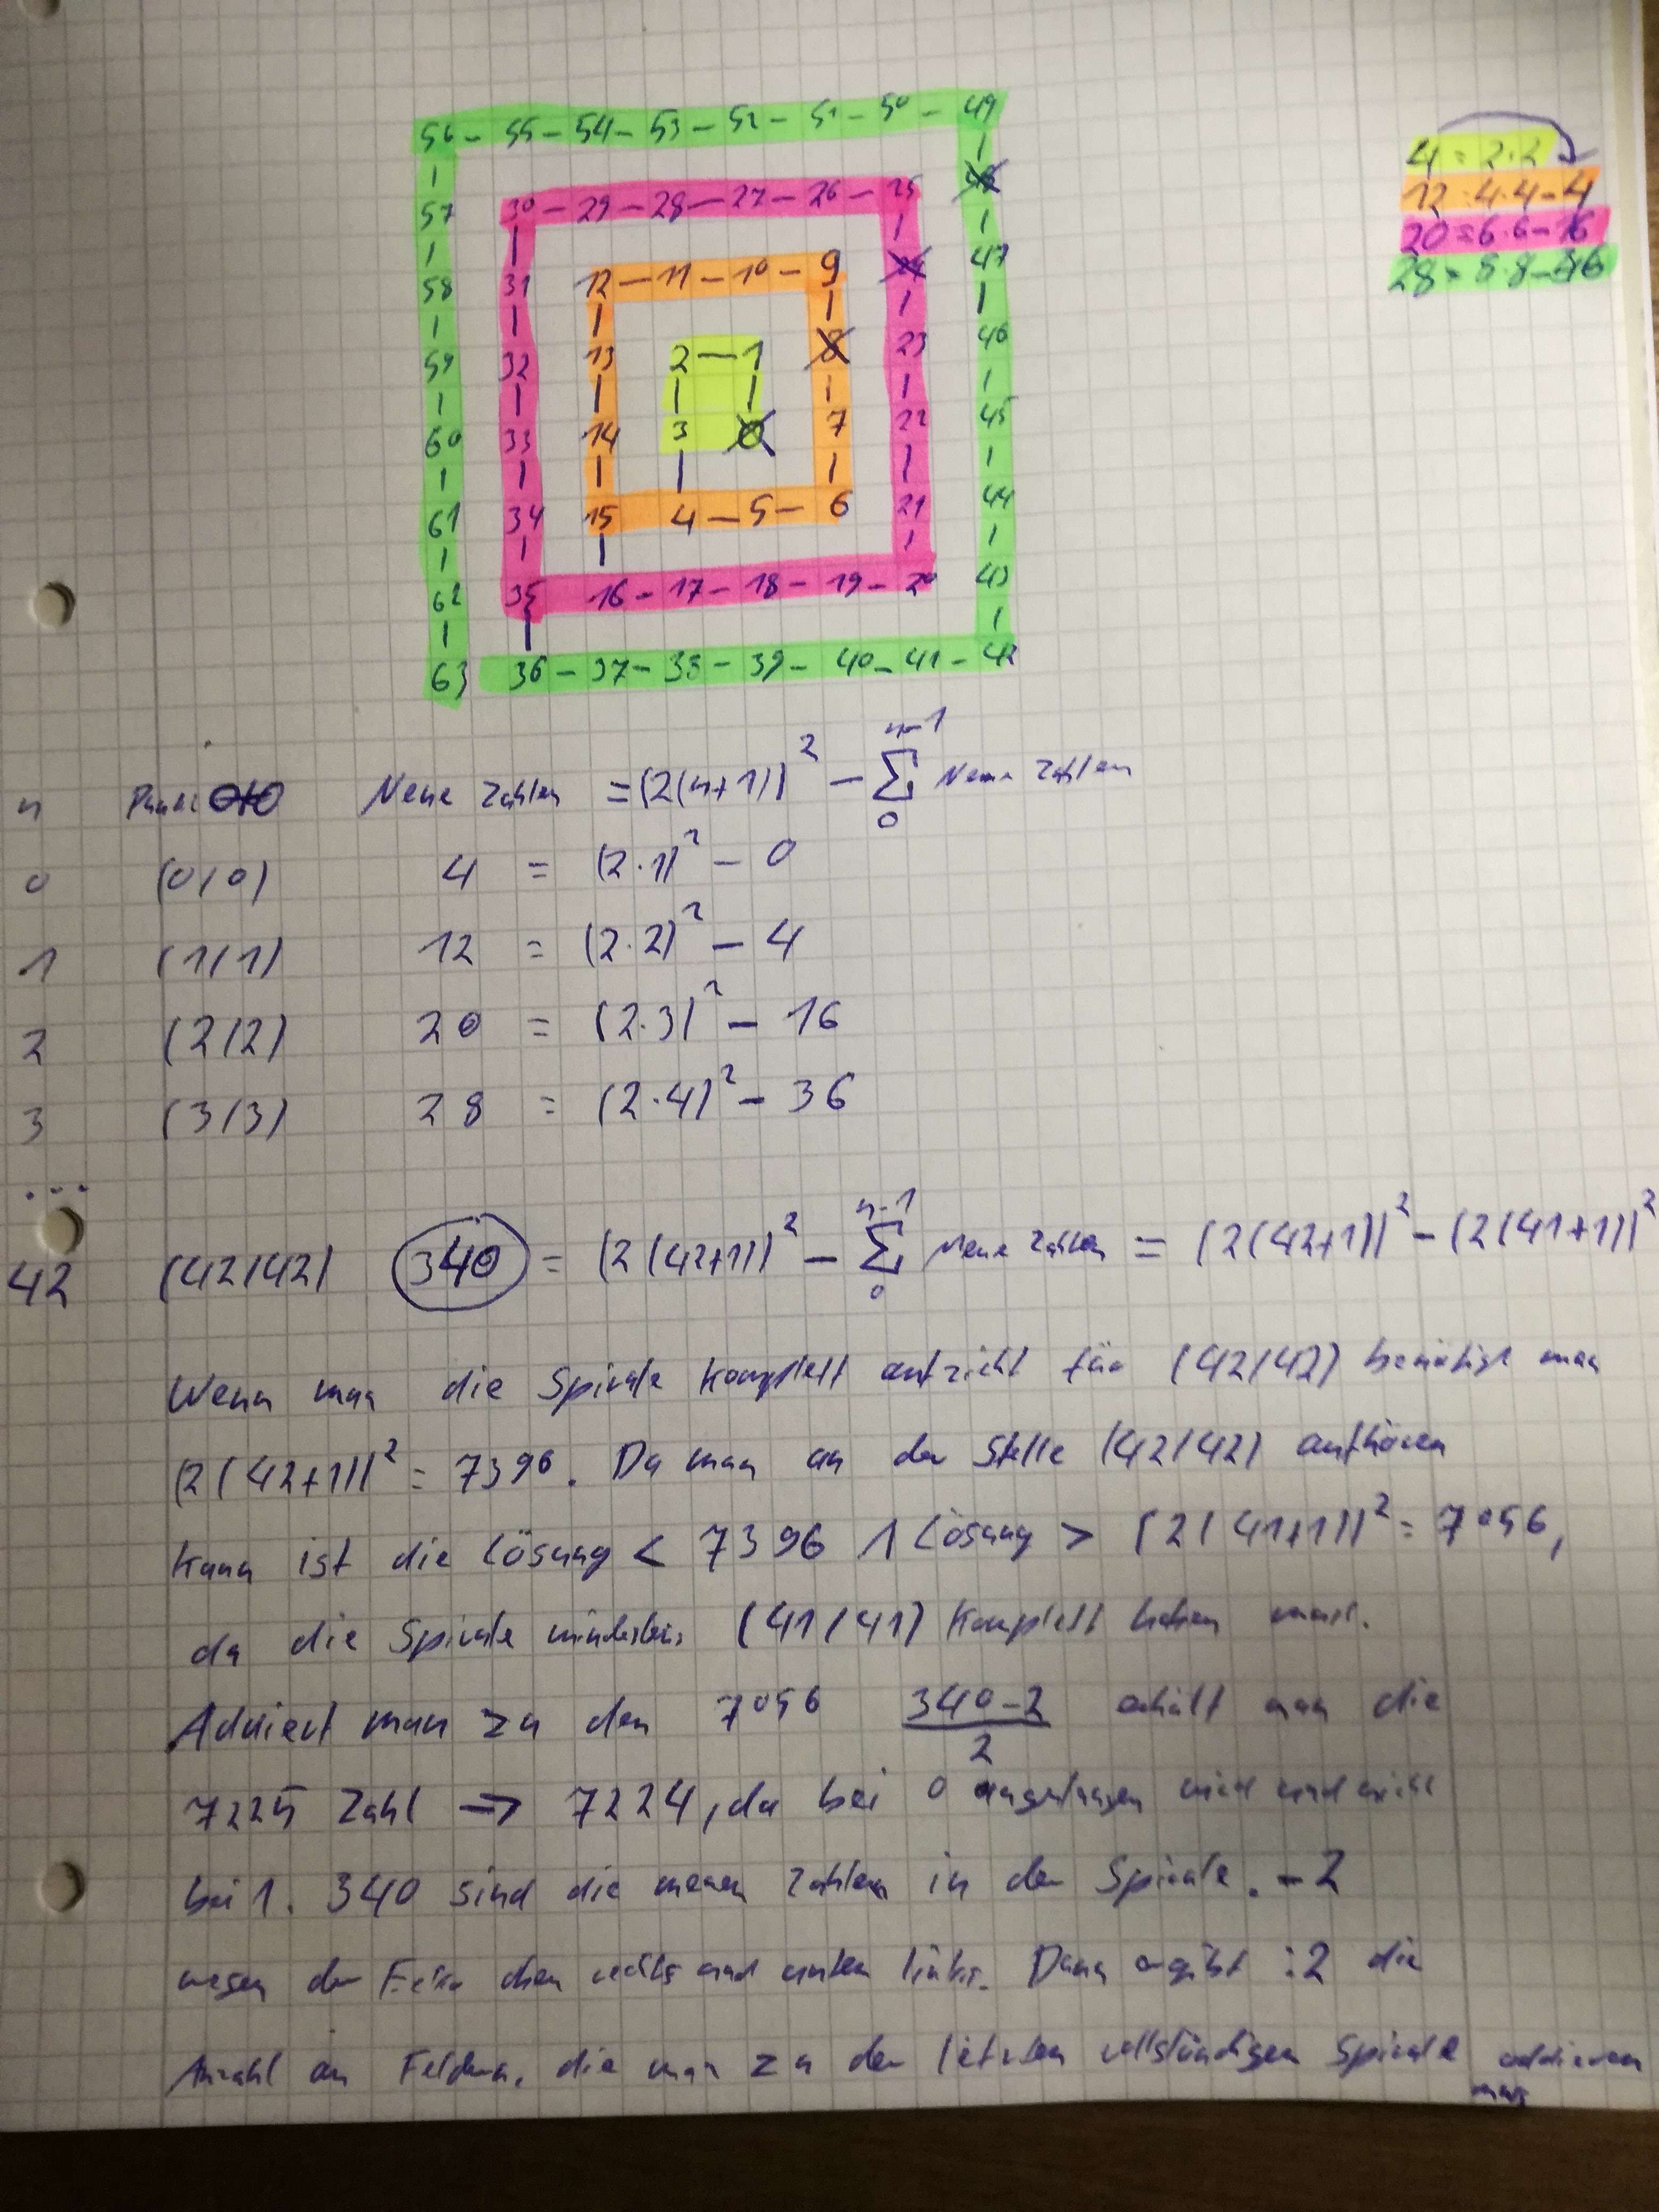 56 - 55 - 54 - 53 - 52 - 51 - 50 - 49
57 30 - 29 - 28 - 27 - 26 - 25 48
58 31 12 - 11 - 10 - 9 24 47
59 32 13 2 - 1 8 23 46
60 33 14 3 0 7 22 45
61 34 15 4 - 5 - 6 21 44
62 35 16 - 17 - 18 - 19 - 20 43
63 36 - 37 - 38 - 39 - 40 - 41 - 42
4 = 2·2
12 = 4·4-4
20 = 6·6-16
28 = 8·8-36
n Punkt Neue Zahlen = (2(n+1))² - ∑ₒⁿ⁻¹ Neue Zahlen
0 (0/0) 4 = (2·1)² - 0
1 (1/1) 12 = (2·2)² - 4
2 (2/2) 20 = (2·3)² - 16
3 (3/3) 28 = (2·4)² - 36
...
42 (42/42) 340 = (2(42+1))² - ∑ₒⁿ⁻¹ Neue Zahlen = (2(42+1))² - (2(41+1))²
Wenn man die Spirale komplett aufzieht für (42/42) benötigt man
(2(42+1))² = 7396. Da man an der Stelle (42/42) aufhören
kann ist die Lösung < 7396 ∧ Lösung > (2(41+1))² = 7056,
da die Spirale mindestens (41/41) komplett haben muss.
Addiert man zu den 7056 (340-2)/2 erhält man die
7225 Zahl ⇒ 7224, da bei 0 angefangen wird und nicht
bei 1. 340 sind die neuen Zahlen in der Spirale. -2
wegen der Ecke oben rechts und unten links. Dann ergibt :2 die
Anzahl an Feldern, die man zu der letzten vollständigen Spirale addieren
muss